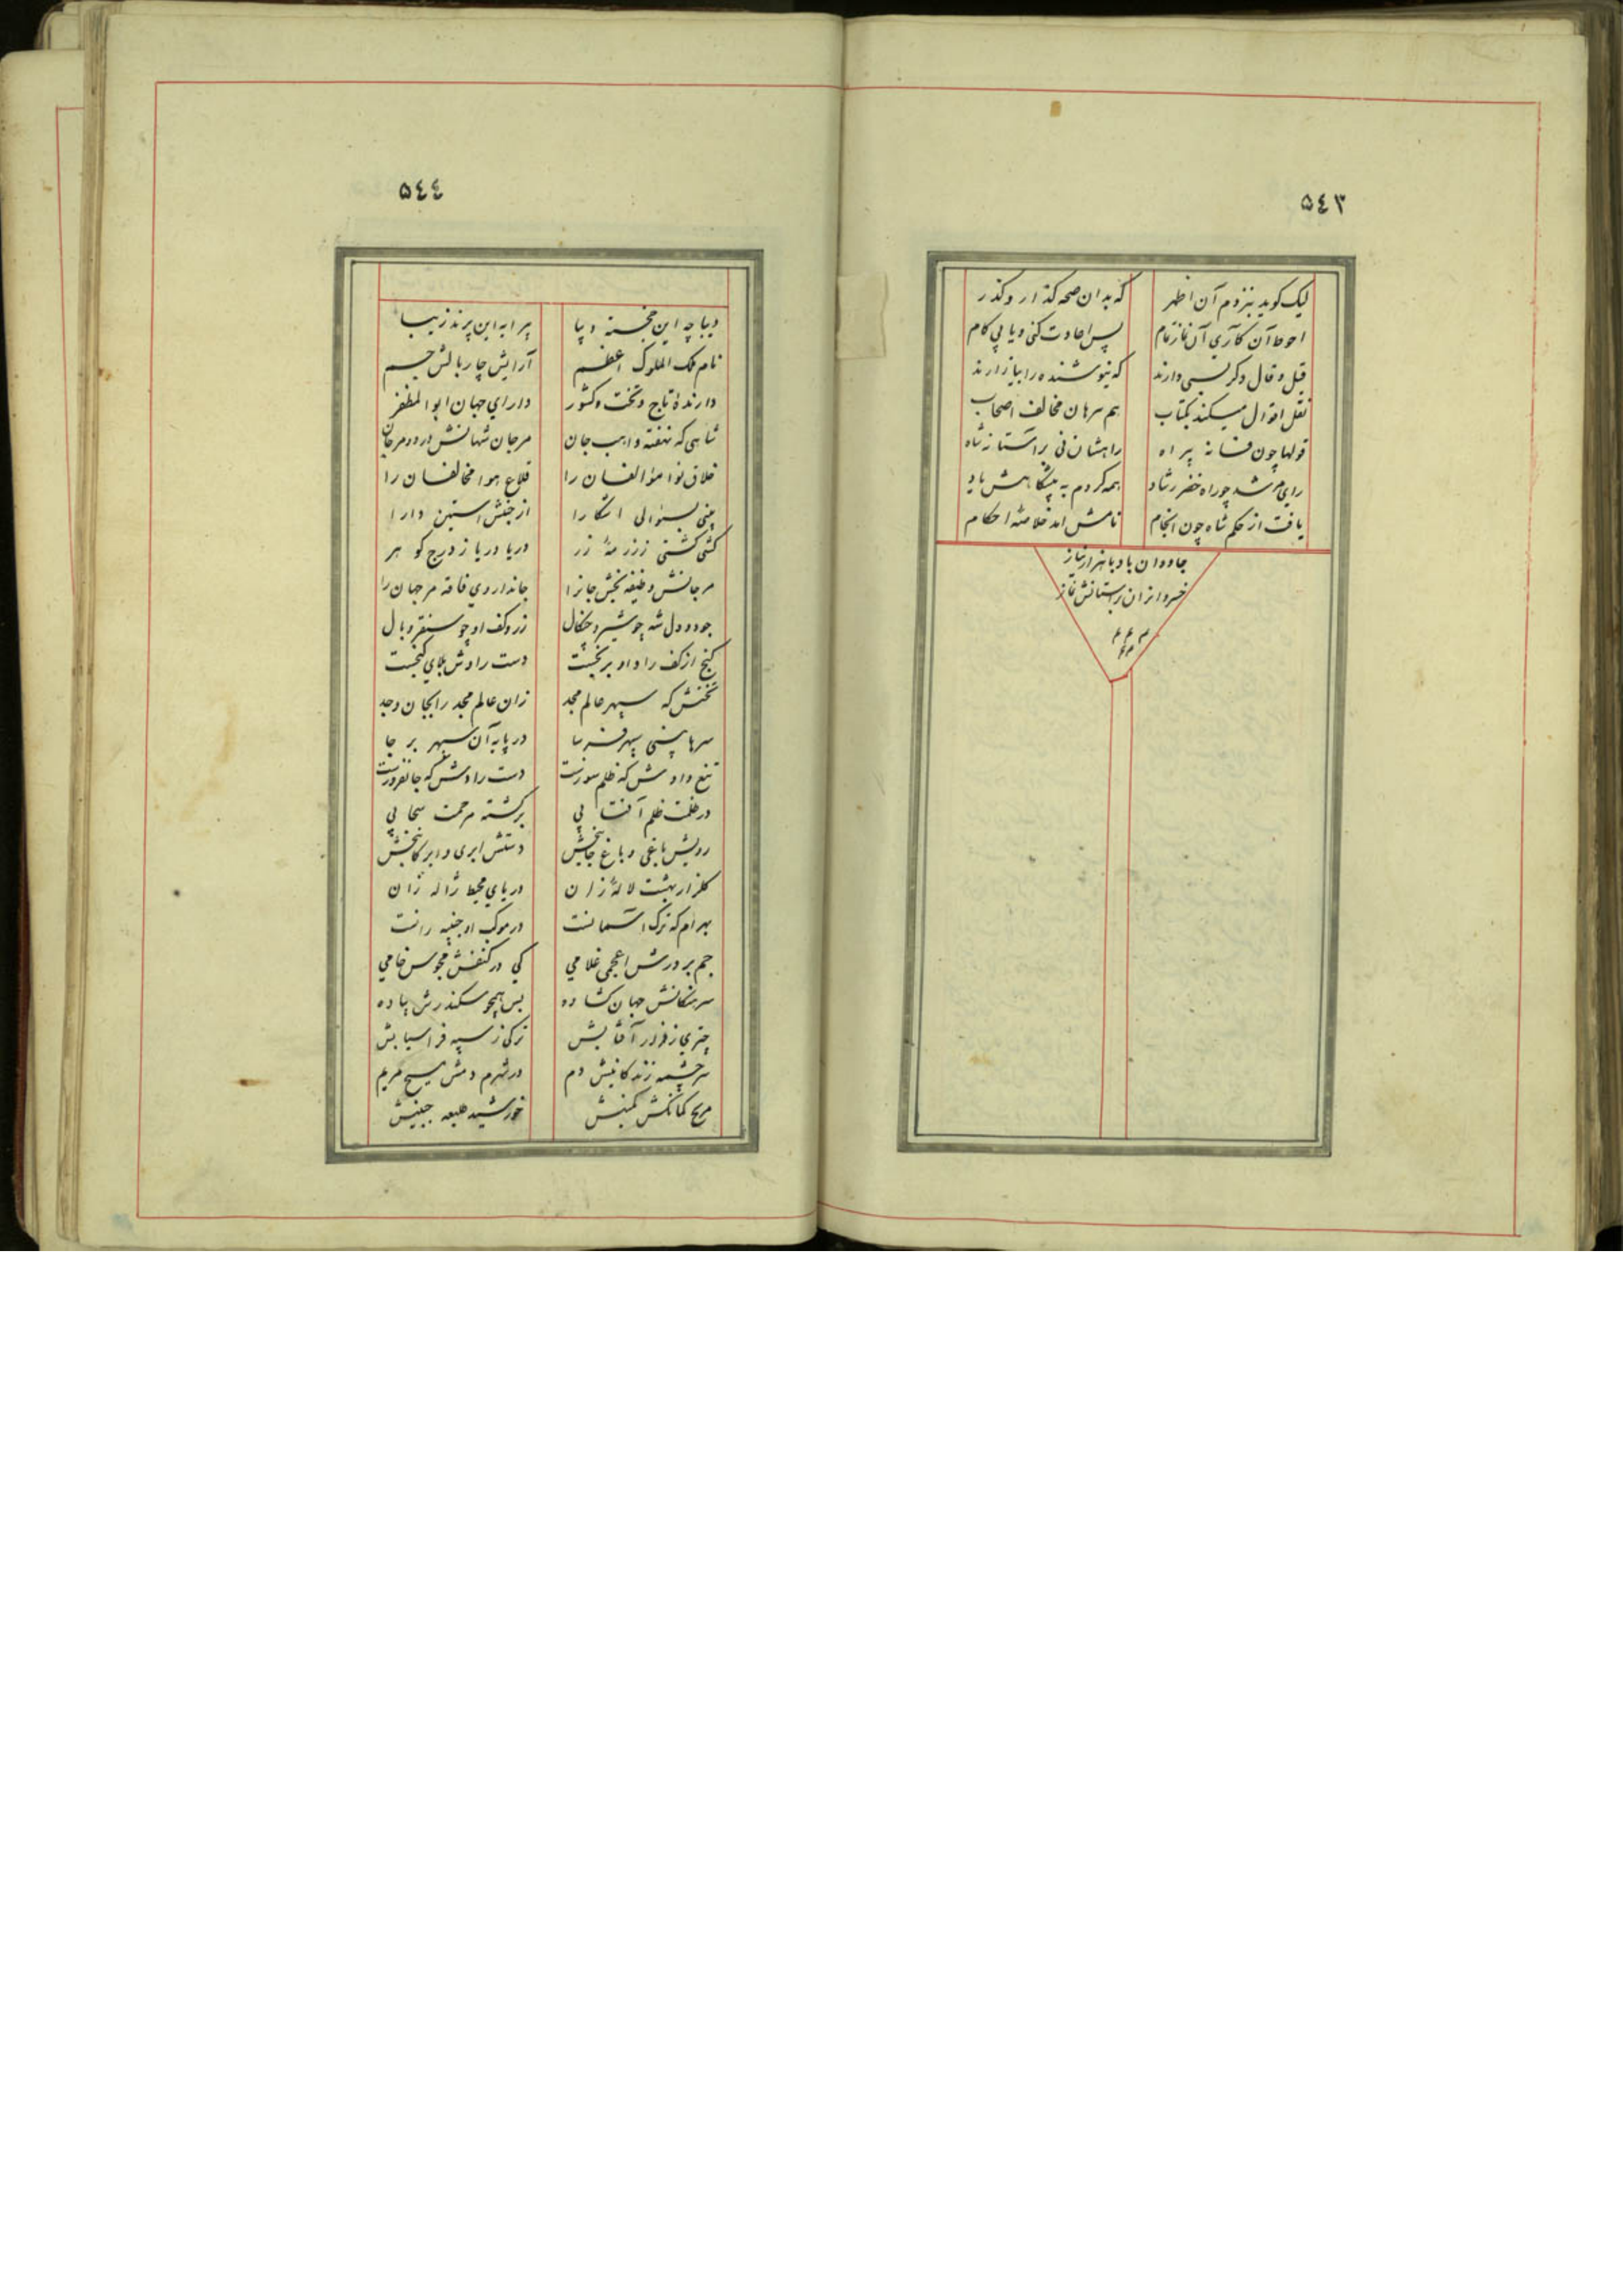 ٥٤٣
لیک کوید بنزدم آن اظهر که بدان صحه کذار و کذر
احوط آن کآری آن نماز تمام پس اعادت کنی و یابی کام
قیل و قال دکر بسی دارند که نیوشنده را بیازارند
نقل اقوال میکند بکتاب هم سر هان مخالف اصحاب
قولها چون فسانه پیراه راهشان نی بر آستانه شاه
رای مرشد چو راه خضر رشاد همه کردم به پیشکاهش یاد
یافت از حکم شاه چون انجام نامش آمد خلاصة احکام
جاودان باد با هزار نیاز
خسروانرا بر آستانش نماز
٥٤٤
دیباچه این خجسته دیبا پیرایه این پرند زیبا
نام ملک الملوک اعظم آرایش چار بالش جم
دارندۀ تاج و تخت و کشور دارای جهان ابوالمظفر
شاهی که نهفته واهب جان مر جان شهانش در دو مرجان
خلاق نوا مؤالفان را قلاع هوا مخالفان را
بینی بسؤالی آشکارا از جنبش آستین دارا
کشتی کشتی ز زر مهٔ زر دریا دریا ز درج کوهر
مرجانش وظیفه بخش جانرا جاندار وی فاقه مر جهان را
جود و دل شه چو شیر و چنکال زر و کف او چو سنقر و بال
کنج از کف راد او برنجست دست رادش بلای کنجست
تختش که سپهر عالم مجد زان عالم مجد را بجان وجد
سرها بینی سپهر فرسا در پایه آن سپهر بر جا
تیغ دادش که ظلم سوزست دست رادش که جانفروزست
در ظلمت ظلم آفتابی بر کشته مرحمت سحابی
رویش باغی و باغ جانبخش دستش ابری و ابر کانبخش
کلزار بهشت لالۀ زان دریای محیط ژاله زان
بهرام که ترک آسمانست در موکب او جنیبه رانست
جم بر درش اعجمی غلامی کی در کنفش مجوس خامی
سرهنکانش جهان کشاده بس همچو سکندرش پیاده
چتری ز فر در آفتابش ترکی ز سپه فراسیابش
سرچشمه زندکانیش دم در شرم دمش مسیح مریم
مریخ کمانکش کمینش خورشید طلیعه جبینش